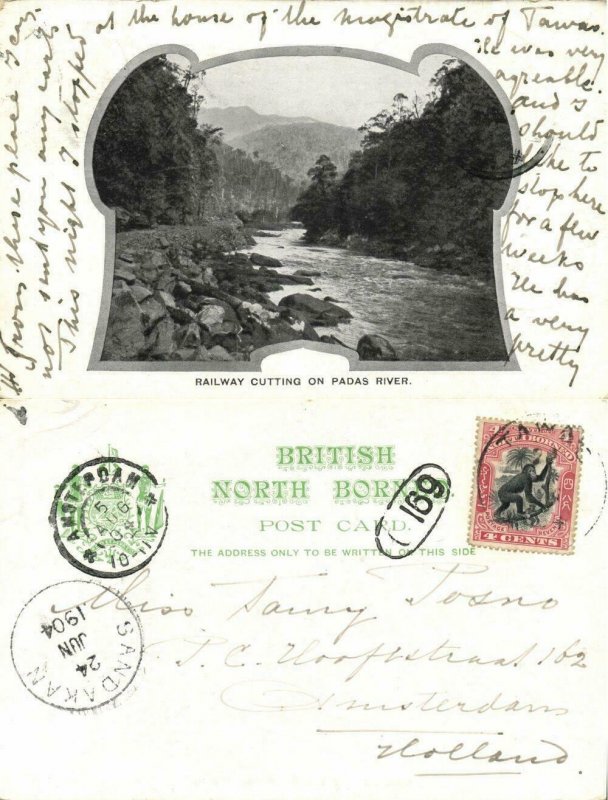 From these place I can
not send you any cards
This night I stopped
at the house of the magistrate of Tawao.
He was very
agreable.
and I
should
like to
stop here
for a few
weeks
He has
a very
pretty
RAILWAY CUTTING ON PADAS RIVER.
BRITISH
NORTH BORNEO.
POST CARD.
THE ADDRESS ONLY TO BE WRITTEN ON THIS SIDE
AMSTERDAM
169
TAWAO
4 CENTS
SANDAKAN
24
JUN
1904
Miss Posno
P. C. Hooftstraat 162
Amsterdam
Holland.